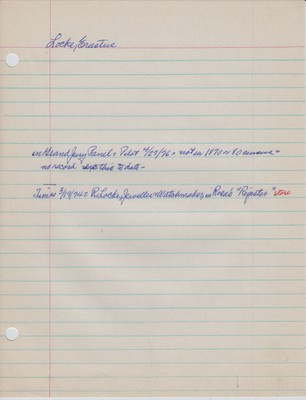 Locke, Erastus
on Grand Jury Panel - Pilot 4/29/76 - not in 1870 or 80 census -
no record except this to date -
Times 3/14/74 - R Locke, Jeweller & Watchmaker, in Rosa's "Register" store